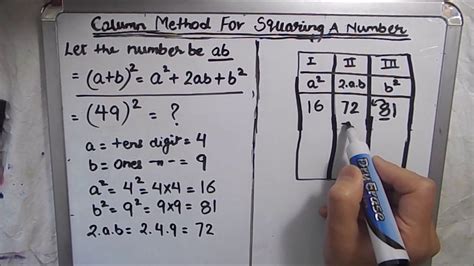 Column Method For Squaring A Number
Let the number be ab
= (a+b)² = a² + 2ab + b²
= (49)² = ?
a = tens digit = 4
b = ones -- ~ = 9
a² = 4² = 4×4 = 16
b² = 9² = 9×9 = 81
2.a.b = 2.4.9 = 72
I II III
a² 2.a.b b²
16 72 81
DRY ERASE